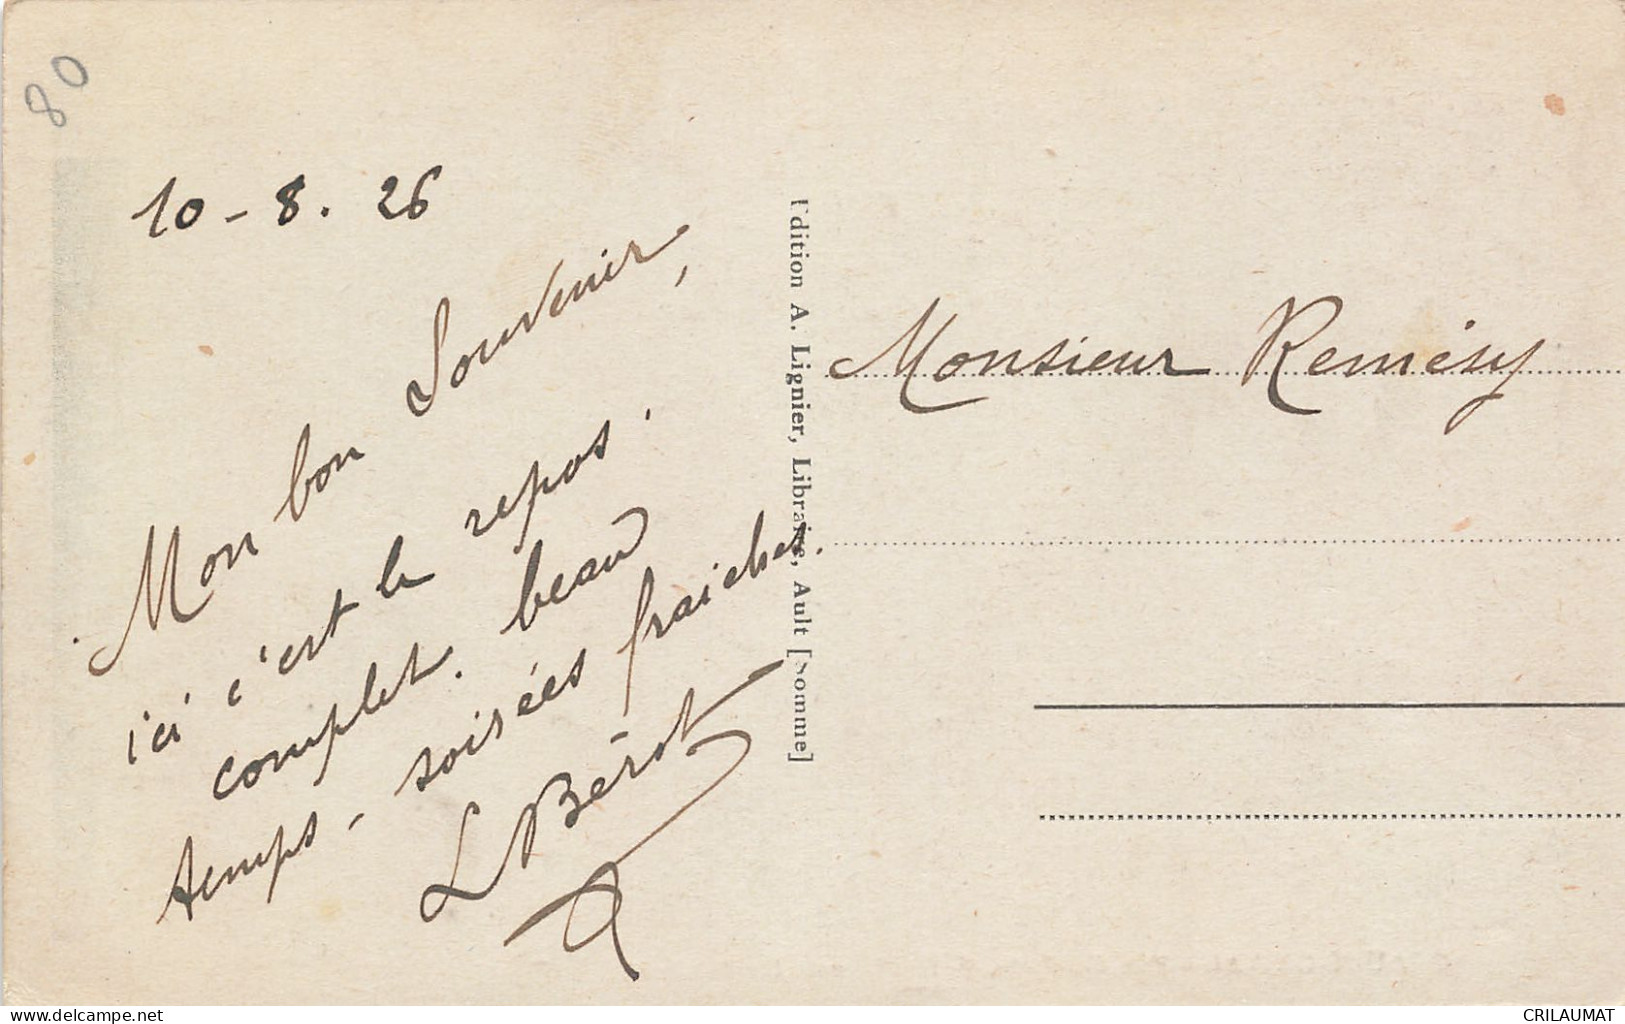 80
10 - 8. 26
Mon bon Souvenir,
ici c'est le repos.
complet. beau
temps - soirées fraiches.
L Bérot
Edition A. Lignier, Libraire, Ault [Somme]
Monsieur Remésy
www.delcampe.net
CRILAUMAT